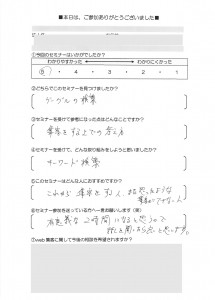 ■本日は、ご参加ありがとうございました■
①今回のセミナーはいかがでしたか?
わかりやすかった わかりにくかった
5 ・ 4 ・ 3 ・ 2 ・ 1
②どちらでこのセミナーを見つけましたか?
グーグルの検索
③セミナーを受けて参考になった点はどんなことですか?
集客をする上での考え方
④セミナーを受けて、どんな取り組みをしようと思いましたか?
キーワード検索
⑤このセミナーはどんな人におすすめですか?
これから集客をする人、
⑥セミナー参加を迷っている方へ一言お願いします(笑)
有意義な2時間になると思うので
⑦web集客に関して今後の相談を希望されますか?